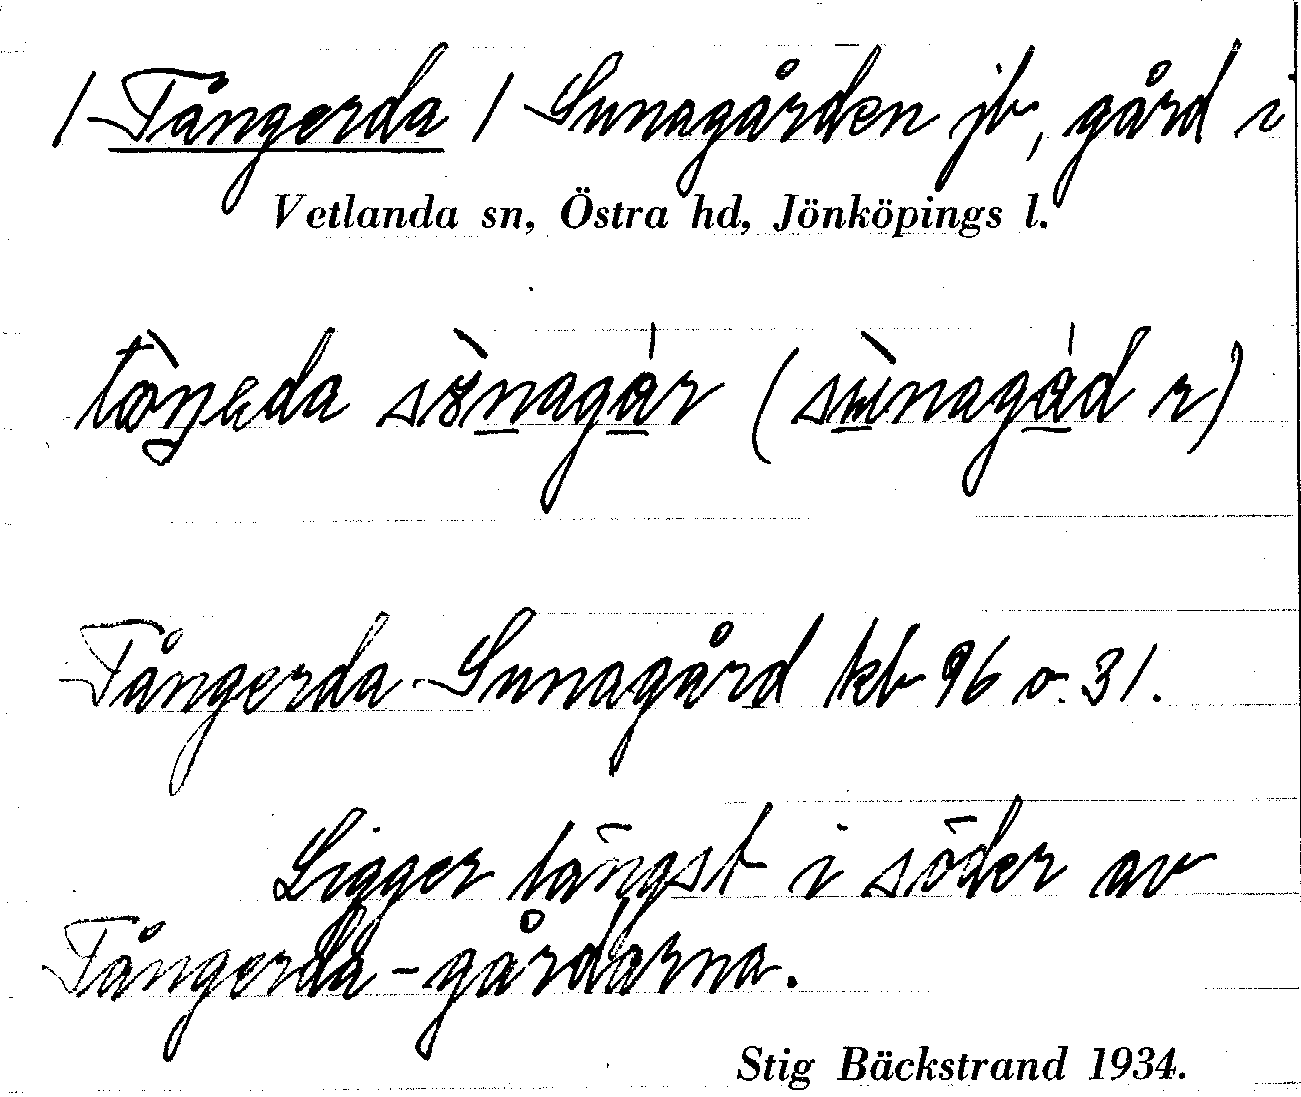 / Tångerda / Sunagården jb, gård i
Vetlanda sn, Östra hd, Jönköpings l.
Tångerda-Sunagård kb 96 o. 31.
Ligger längst i söder av
Tångerda-gårdarna.
Stig Bäckstrand 1934.